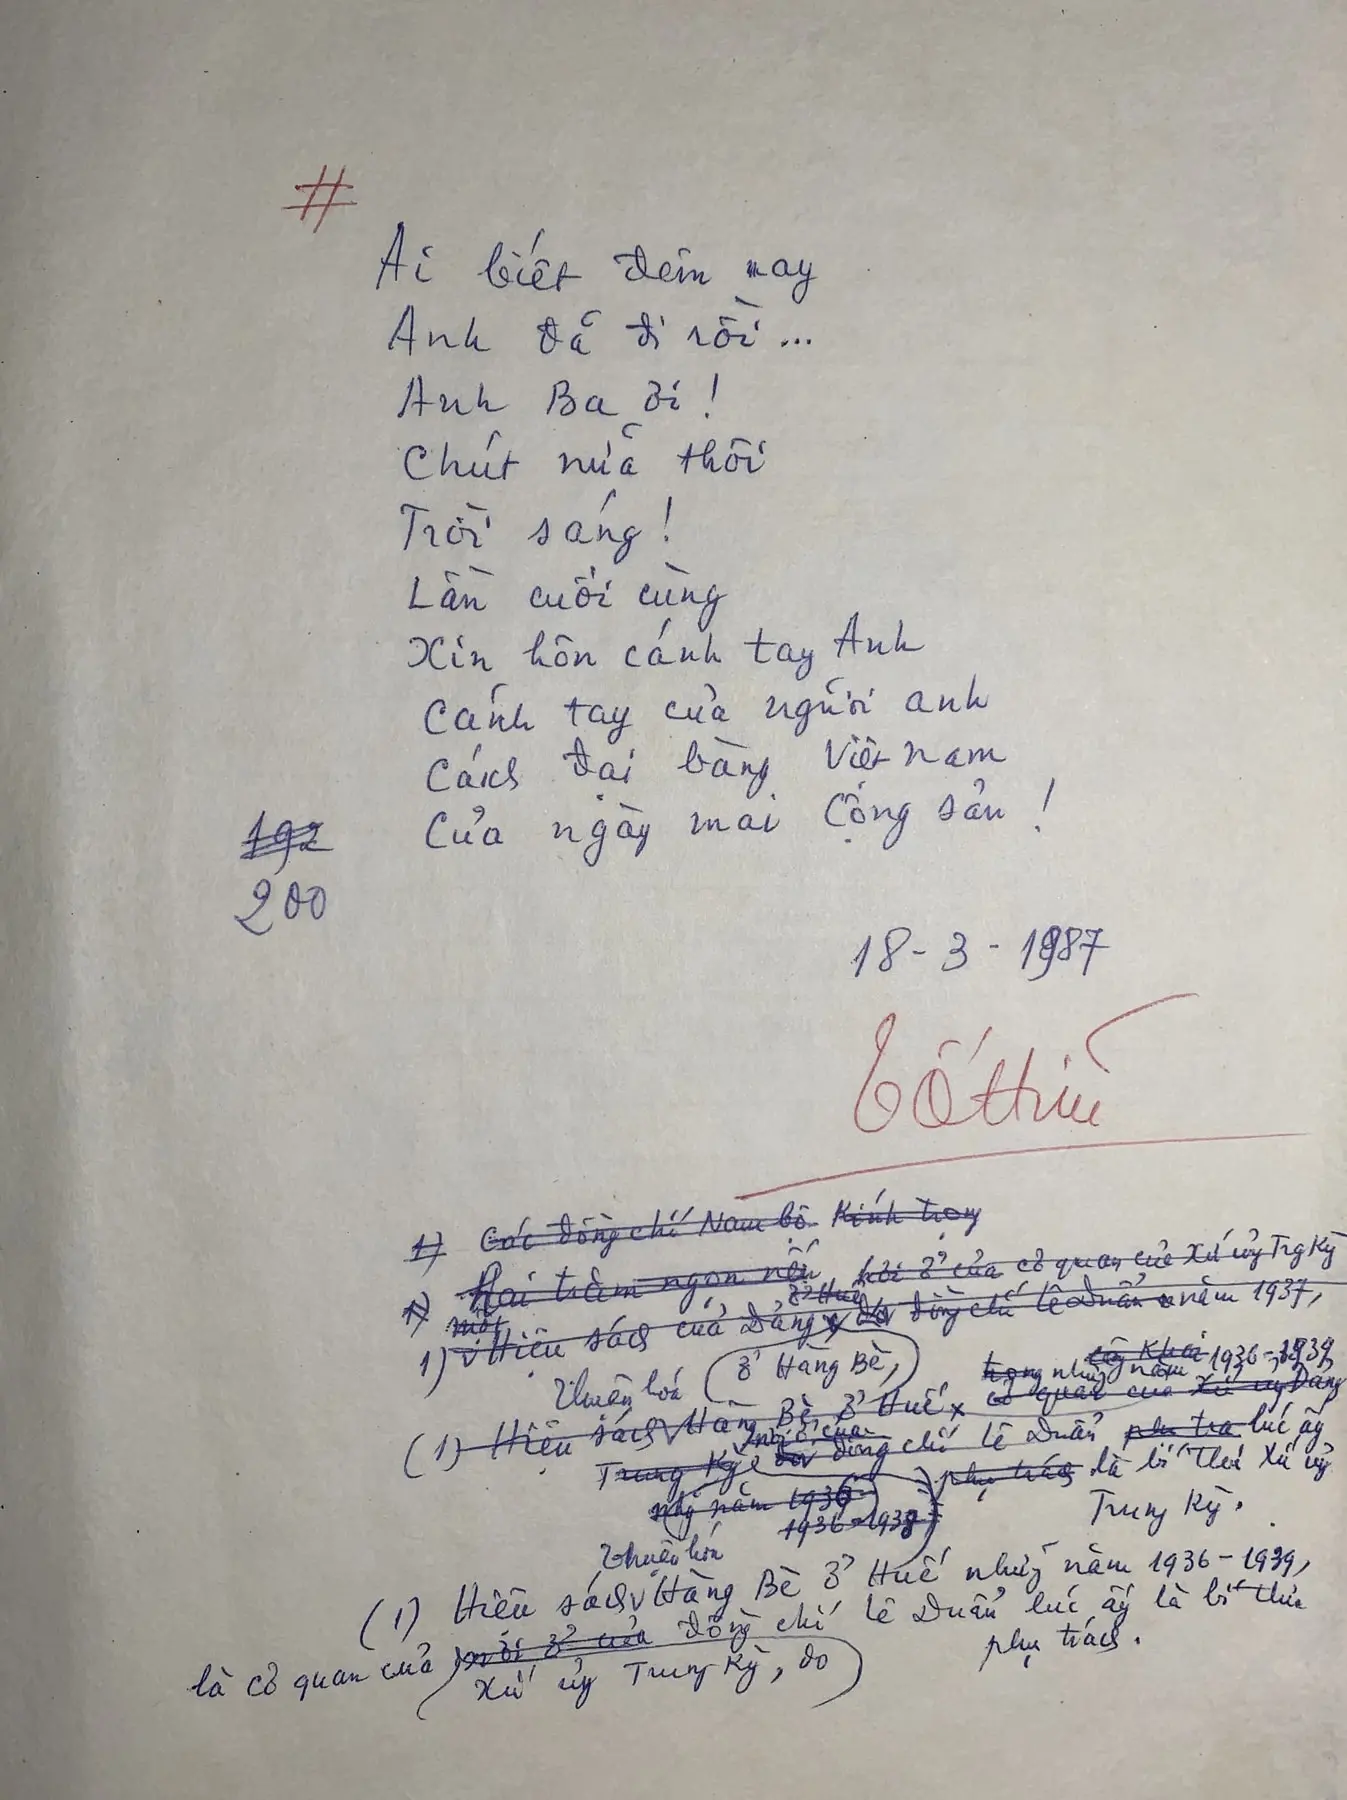 #
Ai biết đêm nay
Anh đã đi rồi...
Anh Ba ơi!
Chút nữa thôi
Trời sáng!
Lần cuối cùng
Xin hôn cánh tay Anh
Cánh tay của người anh
Cánh đại bàng Việt nam
Của ngày mai Cộng sản!
192
200
18-3-1987
Tố Hữu
1) Các đồng chí Nam bộ Kính trọng
Hai trăm ngọn nến
nơi ở của cơ quan của Xứ ủy Trg Kỳ
một
ở Huế
1) Hiệu sách của Đảng do đồng chí Lê Duẩn năm 1937,
Thuận hoá
ở Hàng Bè,
trong những năm 1936-1939
(1) Hiệu sách Hàng Bè ở Huế x cơ quan của Xứ ủy Đảng
Trung Kỳ đồng chí Lê Duẩn phụ tra lúc ấy
phụ trách là bí thư Xứ ủy
những năm 1936
1936-1938
Trung Kỳ.
Thuận hóa
(1) Hiệu sách Hàng Bè ở Huế những năm 1936-1939,
là cơ quan của nơi ở của đồng chí Lê Duẩn lúc ấy là bí thư
Xứ ủy Trung Kỳ, do
phụ trách.